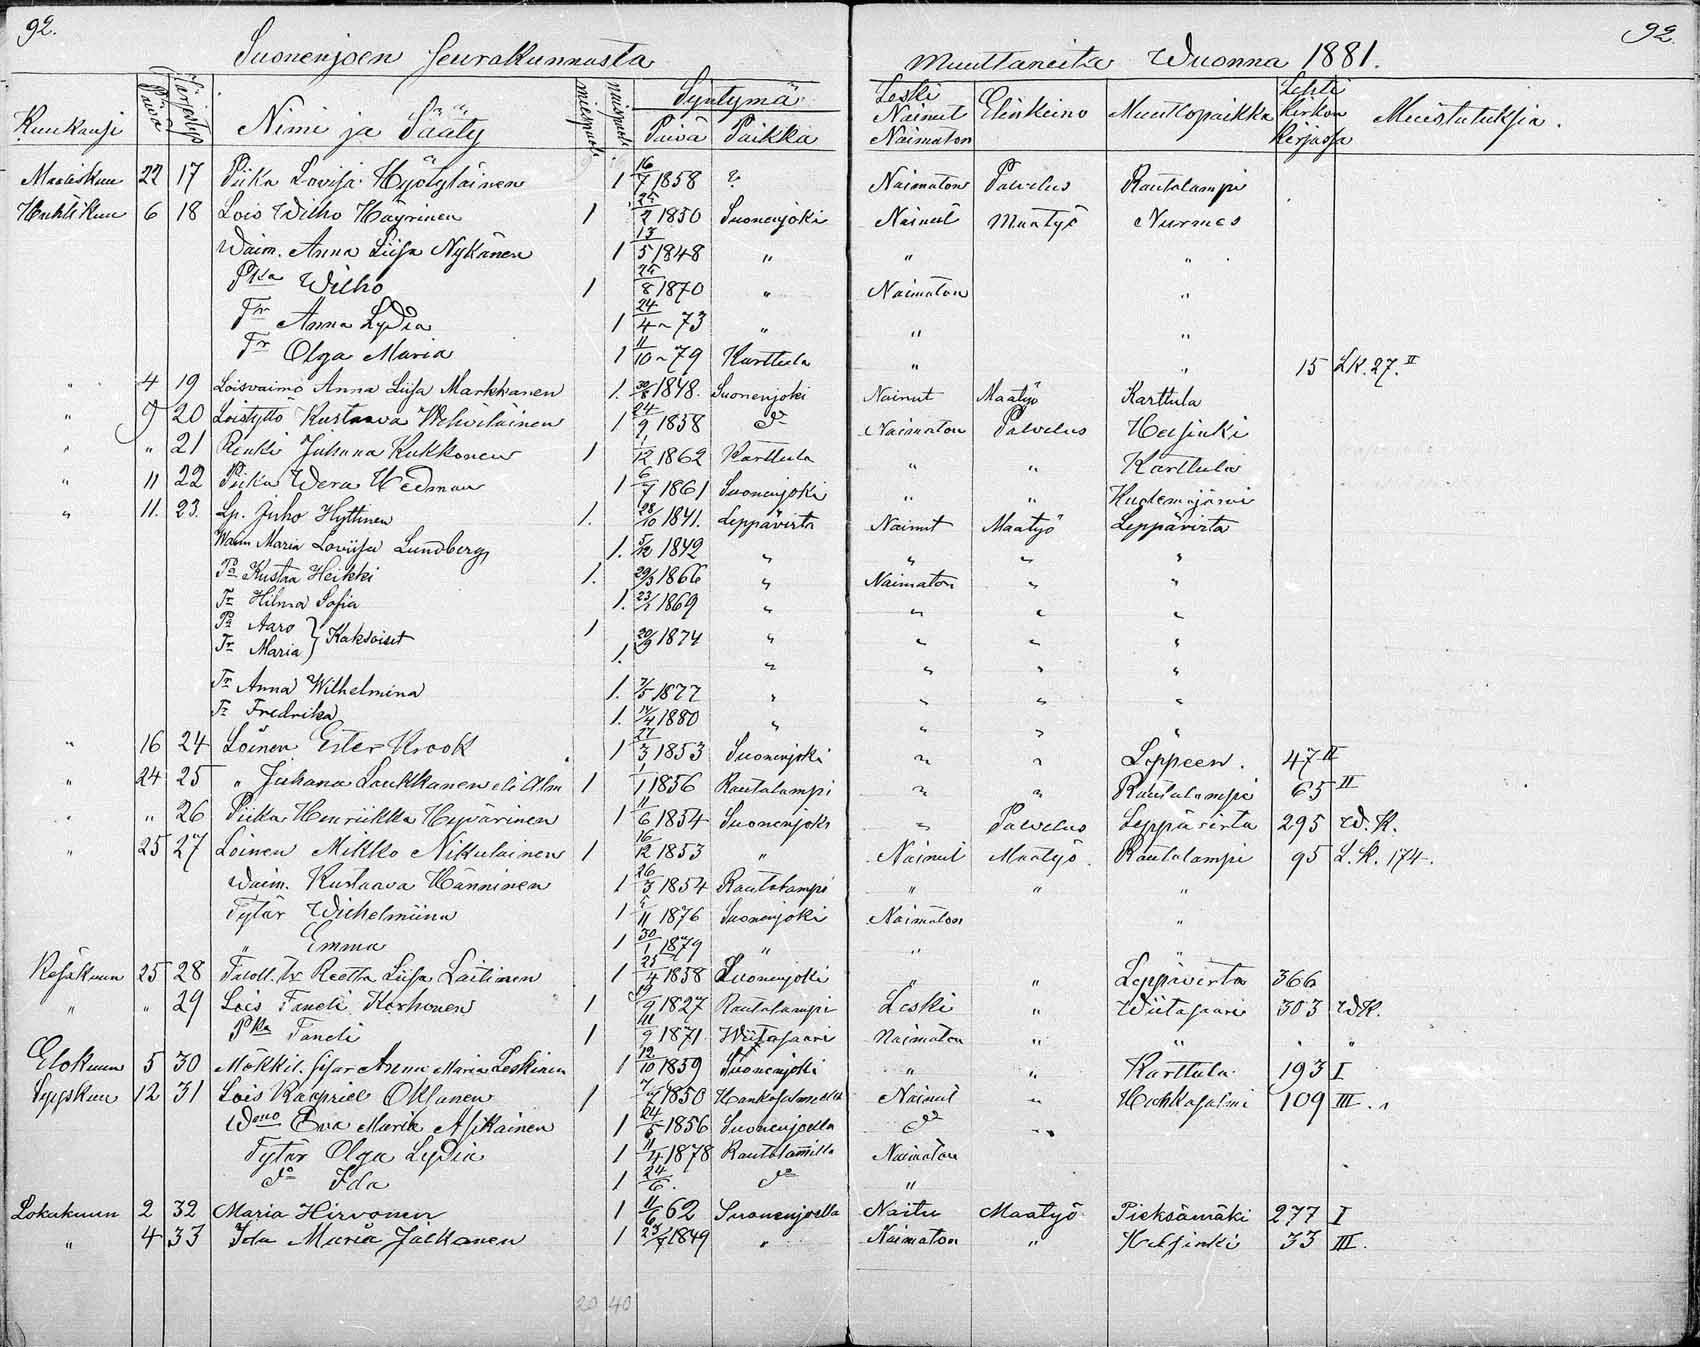 92. 92.
Suonenjoen seurakunnasta muuttaneita Wuonna 1881.
Kuukausi Päivä Järjestys Nimi ja Sääty miespuoli naispuoli Syntymä Päivä Paikka Leski Nainut Naimaton Elinkeino Muuttopaikka Lehti kirkon kirjassa Muistutuksia.
Maaliskuu 22 17 Piika Lovisa Hyötyläinen 1 16/7 1858 ? Naimaton Palvelus Rautalampi
Huhtikuu 6 18 Lois Wilho Häyrinen 1 24/2 1850 Suonenjoki Nainut Maatyö Nurmes
Waim. Anna Liisa Nykänen 1 13/5 1848 " " "
Pka Wilho 1 24/8 1870 " Naimaton "
Tr Anna Lydia 1 24/4 -73 " " "
Tr Olga Maria 1 11/10 -79 Karttula " " 15 LK. 27. II
" 4 19 Loisvaimo Anna Liisa Markkanen 1. 30/8 1848. Suonenjoki Nainut Maatyö Karttula
" 9 20 Loistyttö Kustaava Wehviläinen 1 24/9 1858 do Naimaton Palvelus Helsinki
" " 21 Renki Juhana Kukkonen 1 1/12 1862 Karttula " " Karttula
" 11 22 Piika Wera Wedman 1 6/7 1861 Suonenjoki " "
" 11. 23. Lp. Juho Hyttinen 1. 28/10 1841. Leppävirta Nainut Maatyö Leppävirta
Waim Maria Loviisa Lundberg 1. 5/12 1842 " " " "
Pa Kustaa Heikki 1. 29/3 1866 " Naimaton " "
Tr Hilma Sofia 1. 23/ 1869 " " " "
Pa Aaro } Kaksoiset 1 20/9 1874 " " " "
Tr Maria } 1. " " " "
Tr Anna Wilhelmina 1. 7/5 1877 " " " "
Tr Fredrika 1. 14/4 1880 " " " "
" 16 24 Loinen Ester Krook 1 27/3 1853 Suonenjoki " " Loppeen. 47 II
" 24 25 " Juhana Laukkanen eli Alm 1 1/1 1856 Rautalampi " " Rautalampi 65 II
" " 26 Piika Henriikka Hyvärinen 1 11/6 1854 Suonenjoki " Palvelus Leppävirta 295 W.K.
" 25 27 Loinen Mikko Nikulainen 1 16/12 1853 " Nainut Maatyö Rautalampi 95 L.K. 174.
Waim. Kustaava Hänninen 1 26/3 1854 Rautalampi " " "
Tytär Wilhelmiina 1 5/11 1876 Suonenjoki Naimaton "
" Emma 1 30/1 1879 " " "
Kesäkuun 25 28 Reetta Liisa Laitinen 1 25/4 1858 Suonenjoki " " Leppävirta 366
" " 29 Lois Taneli Korhonen 1 /9 1827 Rautalampi Leski " Wiitasaari 303 WK.
Pka Taneli 1 11/9 1871 Wiitasaari Naimaton " " " "
Elokuun 5 30 Mökkil. sisar Anna Maria Leskinen 1 12/10 1859 Suonenjoki " " Karttula 193 I
Syyskuu 12 31 Lois Kaapriel Oksanen 1 7/7 1850 Nainut " Hankasalmi 109 III.
Wmo Eva Maria Asikainen 1 24/5 1856 Suonenjoella do "
Tytär Olga Lydia 1 11/4 1878 Rautalammilla Naimaton
do Ida 1 24/6. do "
Lokakuun 2 32 Maria Hirvonen 1 11/6 62 Suonenjoella Naitu Maatyö Pieksämäki 277 I
" 4 33 Ida Maria Jalkanen 1 23/7 1849 " Naimaton " Helsinki 33 III.
20 40